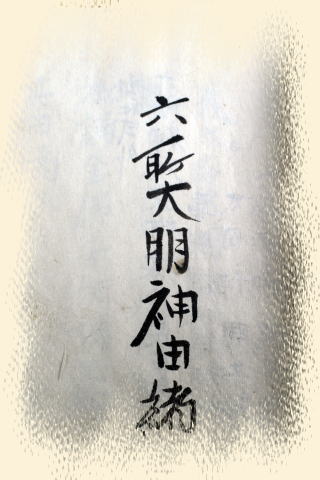 六所大明神由緒